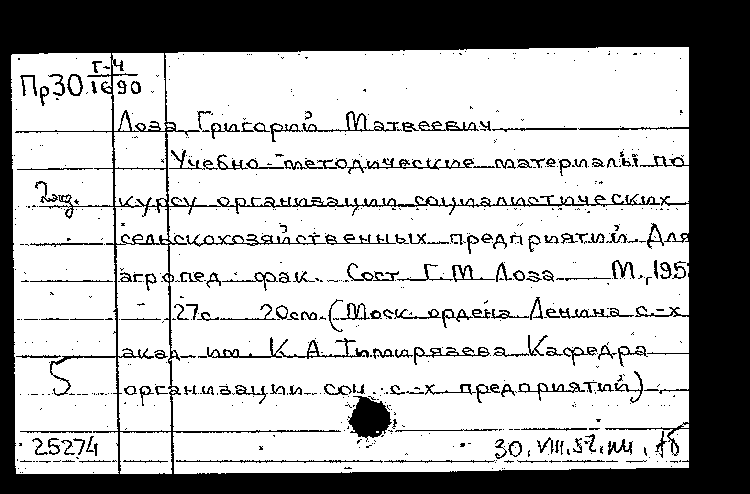 Пр30 Г-4/1690
Лоза Григорий Матвеевич
Учебно-методические материалы по
2 экз. курсу организации социалистических
сельскохозяйственных предприятий. Для
агропед. фак. Сост. Г. М. Лоза М., 195
27с. 20см. (Моск. ордена Ленина с.-х.
акад. им. К. А. Тимирязева Кафедра
5 организации соц. с.-х. предприятий).
25274 30.VIII.52.